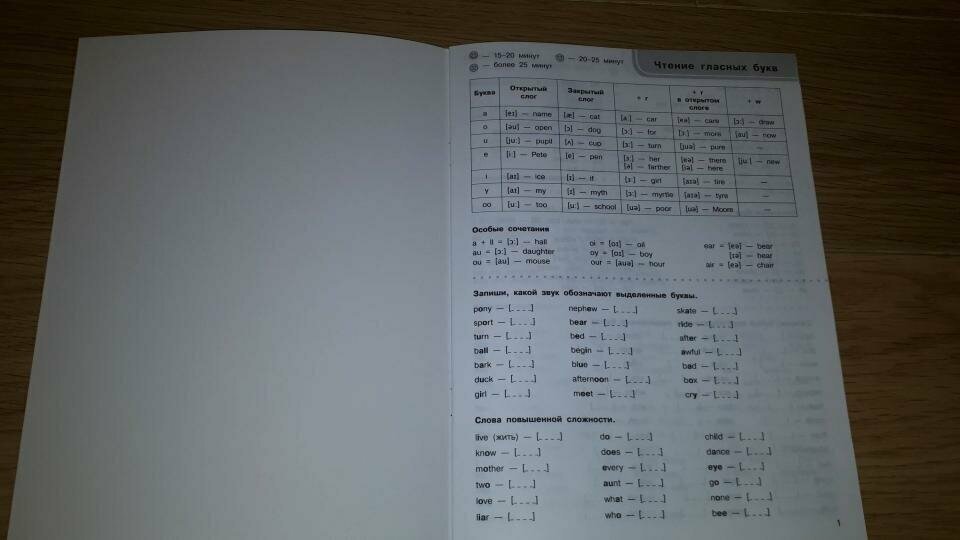 — 15–20 минут — 20–25 минут
— более 25 минут
Чтение гласных букв
Буква Открытый слог Закрытый слог + r + r в открытом слоге + w
a [eɪ] — name [æ] — cat [ɑ:] — car [eə] — care [ɔ:] — draw
o [əu] — open [ɔ] — dog [ɔ:] — for [ɔ:] — more [au] — now
u [ju:] — pupil [ʌ] — cup [ɜ:] — turn [juə] — pure —
e [i:] — Pete [e] — pen [ɜ:] — her [ə] — farther [eə] — there [ɪə] — here [ju:] — new
i [aɪ] — ice [ɪ] — if [ɜ:] — girl [aɪə] — tire —
y [aɪ] — my [ɪ] — myth [ɜ:] — myrtle [aɪə] — tyre —
oo [u:] — too [u:] — school [uə] — poor [uə] — Moore —
Особые сочетания
a + ll = [ɔ:] — hall oi = [ɔɪ] — oil ear = [eə] — bear
au = [ɔ:] — daughter oy = [ɔɪ] — boy [ɪə] — hear
ou = [au] — mouse our = [auə] — hour air = [eə] — chair
Запиши, какой звук обозначают выделенные буквы.
pony — [_ _ _] nephew — [_ _ _] skate — [_ _ _]
sport — [_ _ _] bear — [_ _ _] ride — [_ _ _]
turn — [_ _ _] bed — [_ _ _] after — [_ _ _]
ball — [_ _ _] begin — [_ _ _] awful — [_ _ _]
bark — [_ _ _] blue — [_ _ _] bad — [_ _ _]
duck — [_ _ _] afternoon — [_ _ _] box — [_ _ _]
girl — [_ _ _] meet — [_ _ _] cry — [_ _ _]
Слова повышенной сложности.
live (жить) — [_ _ _] do — [_ _ _] child — [_ _ _]
know — [_ _ _] does — [_ _ _] dance — [_ _ _]
mother — [_ _ _] every — [_ _ _] eye — [_ _ _]
two — [_ _ _] aunt — [_ _ _] go — [_ _ _]
love — [_ _ _] what — [_ _ _] none — [_ _ _]
liar — [_ _ _] who — [_ _ _] bee — [_ _ _]
1